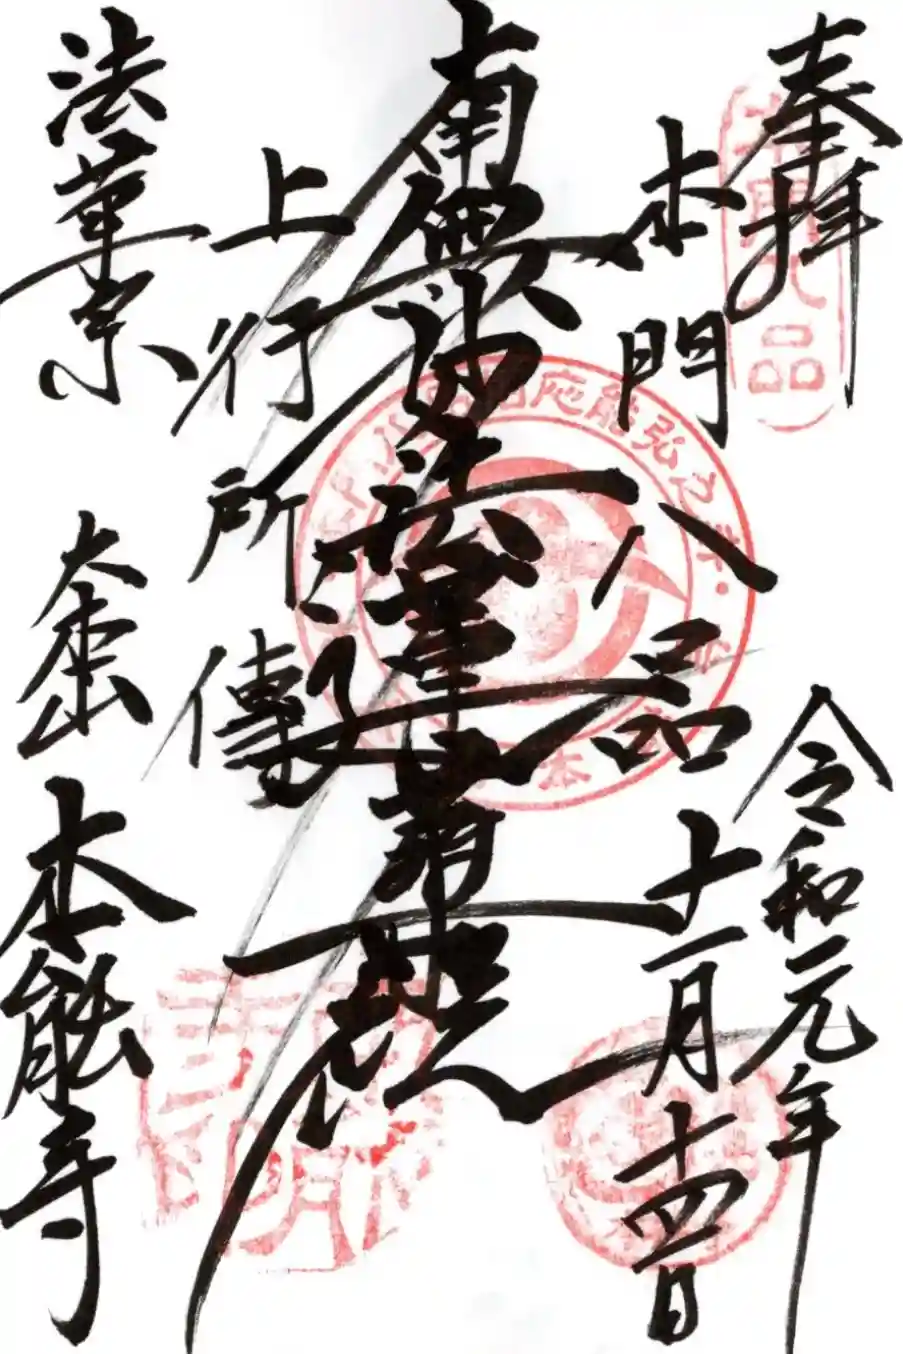 奉拝
令和元年
十一月十四日
本門八品
南無妙法蓮華経
上行所傳
法華宗
大本山
本能寺
品